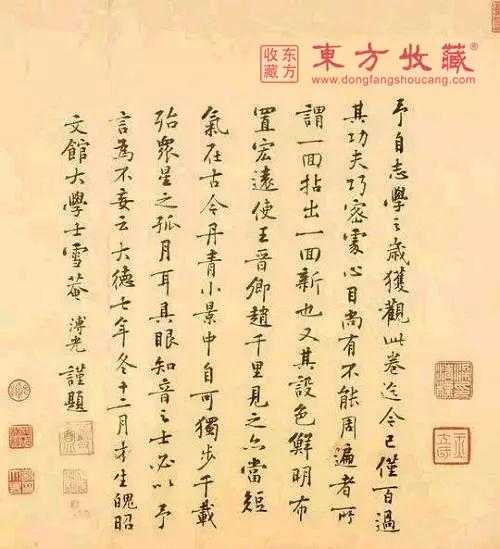 东方收藏
東方收藏®
www.dongfangshoucang.com
予自志學之歳獲觀此卷迄今已僅百過
其功夫巧密處心目尚有不能周遍者所
謂一面拈出一面新也又其設色鮮明布
置宏遠使王晉卿趙千里見之亦當短
氣在古今丹青小景中自可獨步千載
殆衆星之孤月耳具眼知音之士必以予
言為不妄云大德七年冬十二月才生魄昭
文館大學士雪菴 溥光 謹題